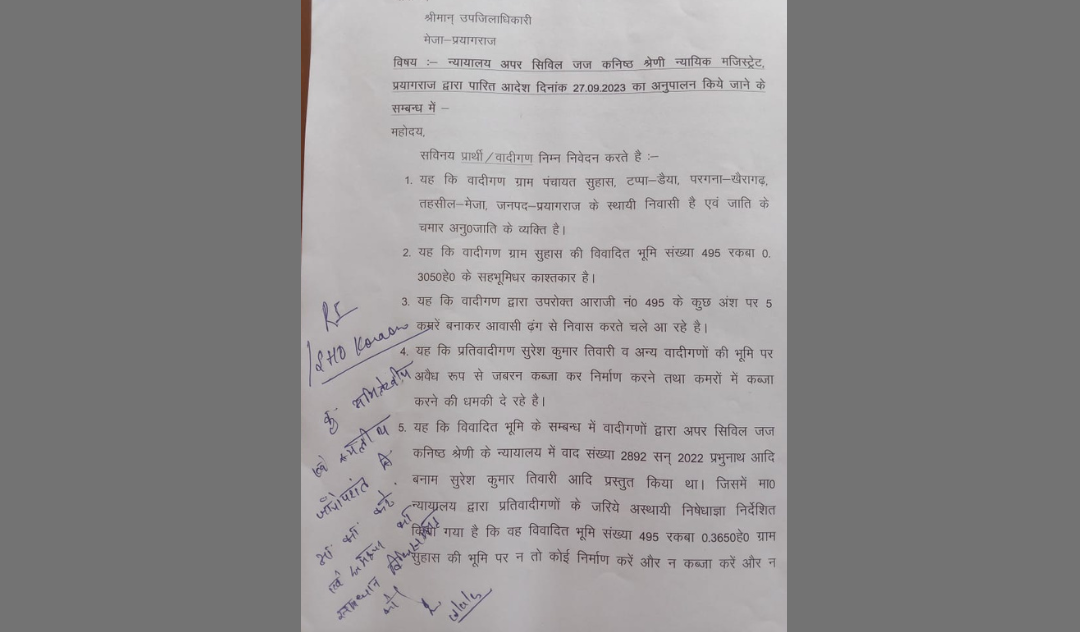 श्रीमान् उपजिलाधिकारी
मेजा–प्रयागराज
विषय :– न्यायालय अपर सिविल जज कनिष्ठ श्रेणी न्यायिक मजिस्ट्रेट,
प्रयागराज द्वारा पारित आदेश दिनांक 27.09.2023 का अनुपालन किये जाने के
सम्बन्ध में –
महोदय,
सविनय प्रार्थी/वादीगण निम्न निवेदन करते है :–
1. यह कि वादीगण ग्राम पंचायत सुहास, टप्पा–डैया, परगना–खैरागढ़,
तहसील–मेजा, जनपद–प्रयागराज के स्थायी निवासी है एवं जाति के
चमार अनु0जाति के व्यक्ति है।
2. यह कि वादीगण ग्राम सुहास की विवादित भूमि संख्या 495 रकबा 0.
3050हे0 के सहभूमिधर काश्तकार है।
3. यह कि वादीगण द्वारा उपरोक्त आराजी नं0 495 के कुछ अंश पर 5
कमरें बनाकर आवासी ढ़ंग से निवास करते चले आ रहे है।
4. यह कि प्रतिवादीगण सुरेश कुमार तिवारी व अन्य वादीगणों की भूमि पर
अवैध रूप से जबरन कब्जा कर निर्माण करने तथा कमरों में कब्जा
करने की धमकी दे रहे है।
5. यह कि विवादित भूमि के सम्बन्ध में वादीगणों द्वारा अपर सिविल जज
कनिष्ठ श्रेणी के न्यायालय में वाद संख्या 2892 सन् 2022 प्रभुनाथ आदि
बनाम सुरेश कुमार तिवारी आदि प्रस्तुत किया था। जिसमें मा0
न्यायालय द्वारा प्रतिवादीगणों के जरिये अस्थायी निषेधाज्ञा निर्देशित
किया गया है कि वह विवादित भूमि संख्या 495 रकबा 0.3650हे0 ग्राम
सुहास की भूमि पर न तो कोई निर्माण करें और न कब्जा करें और न
RI
SHO Koraon